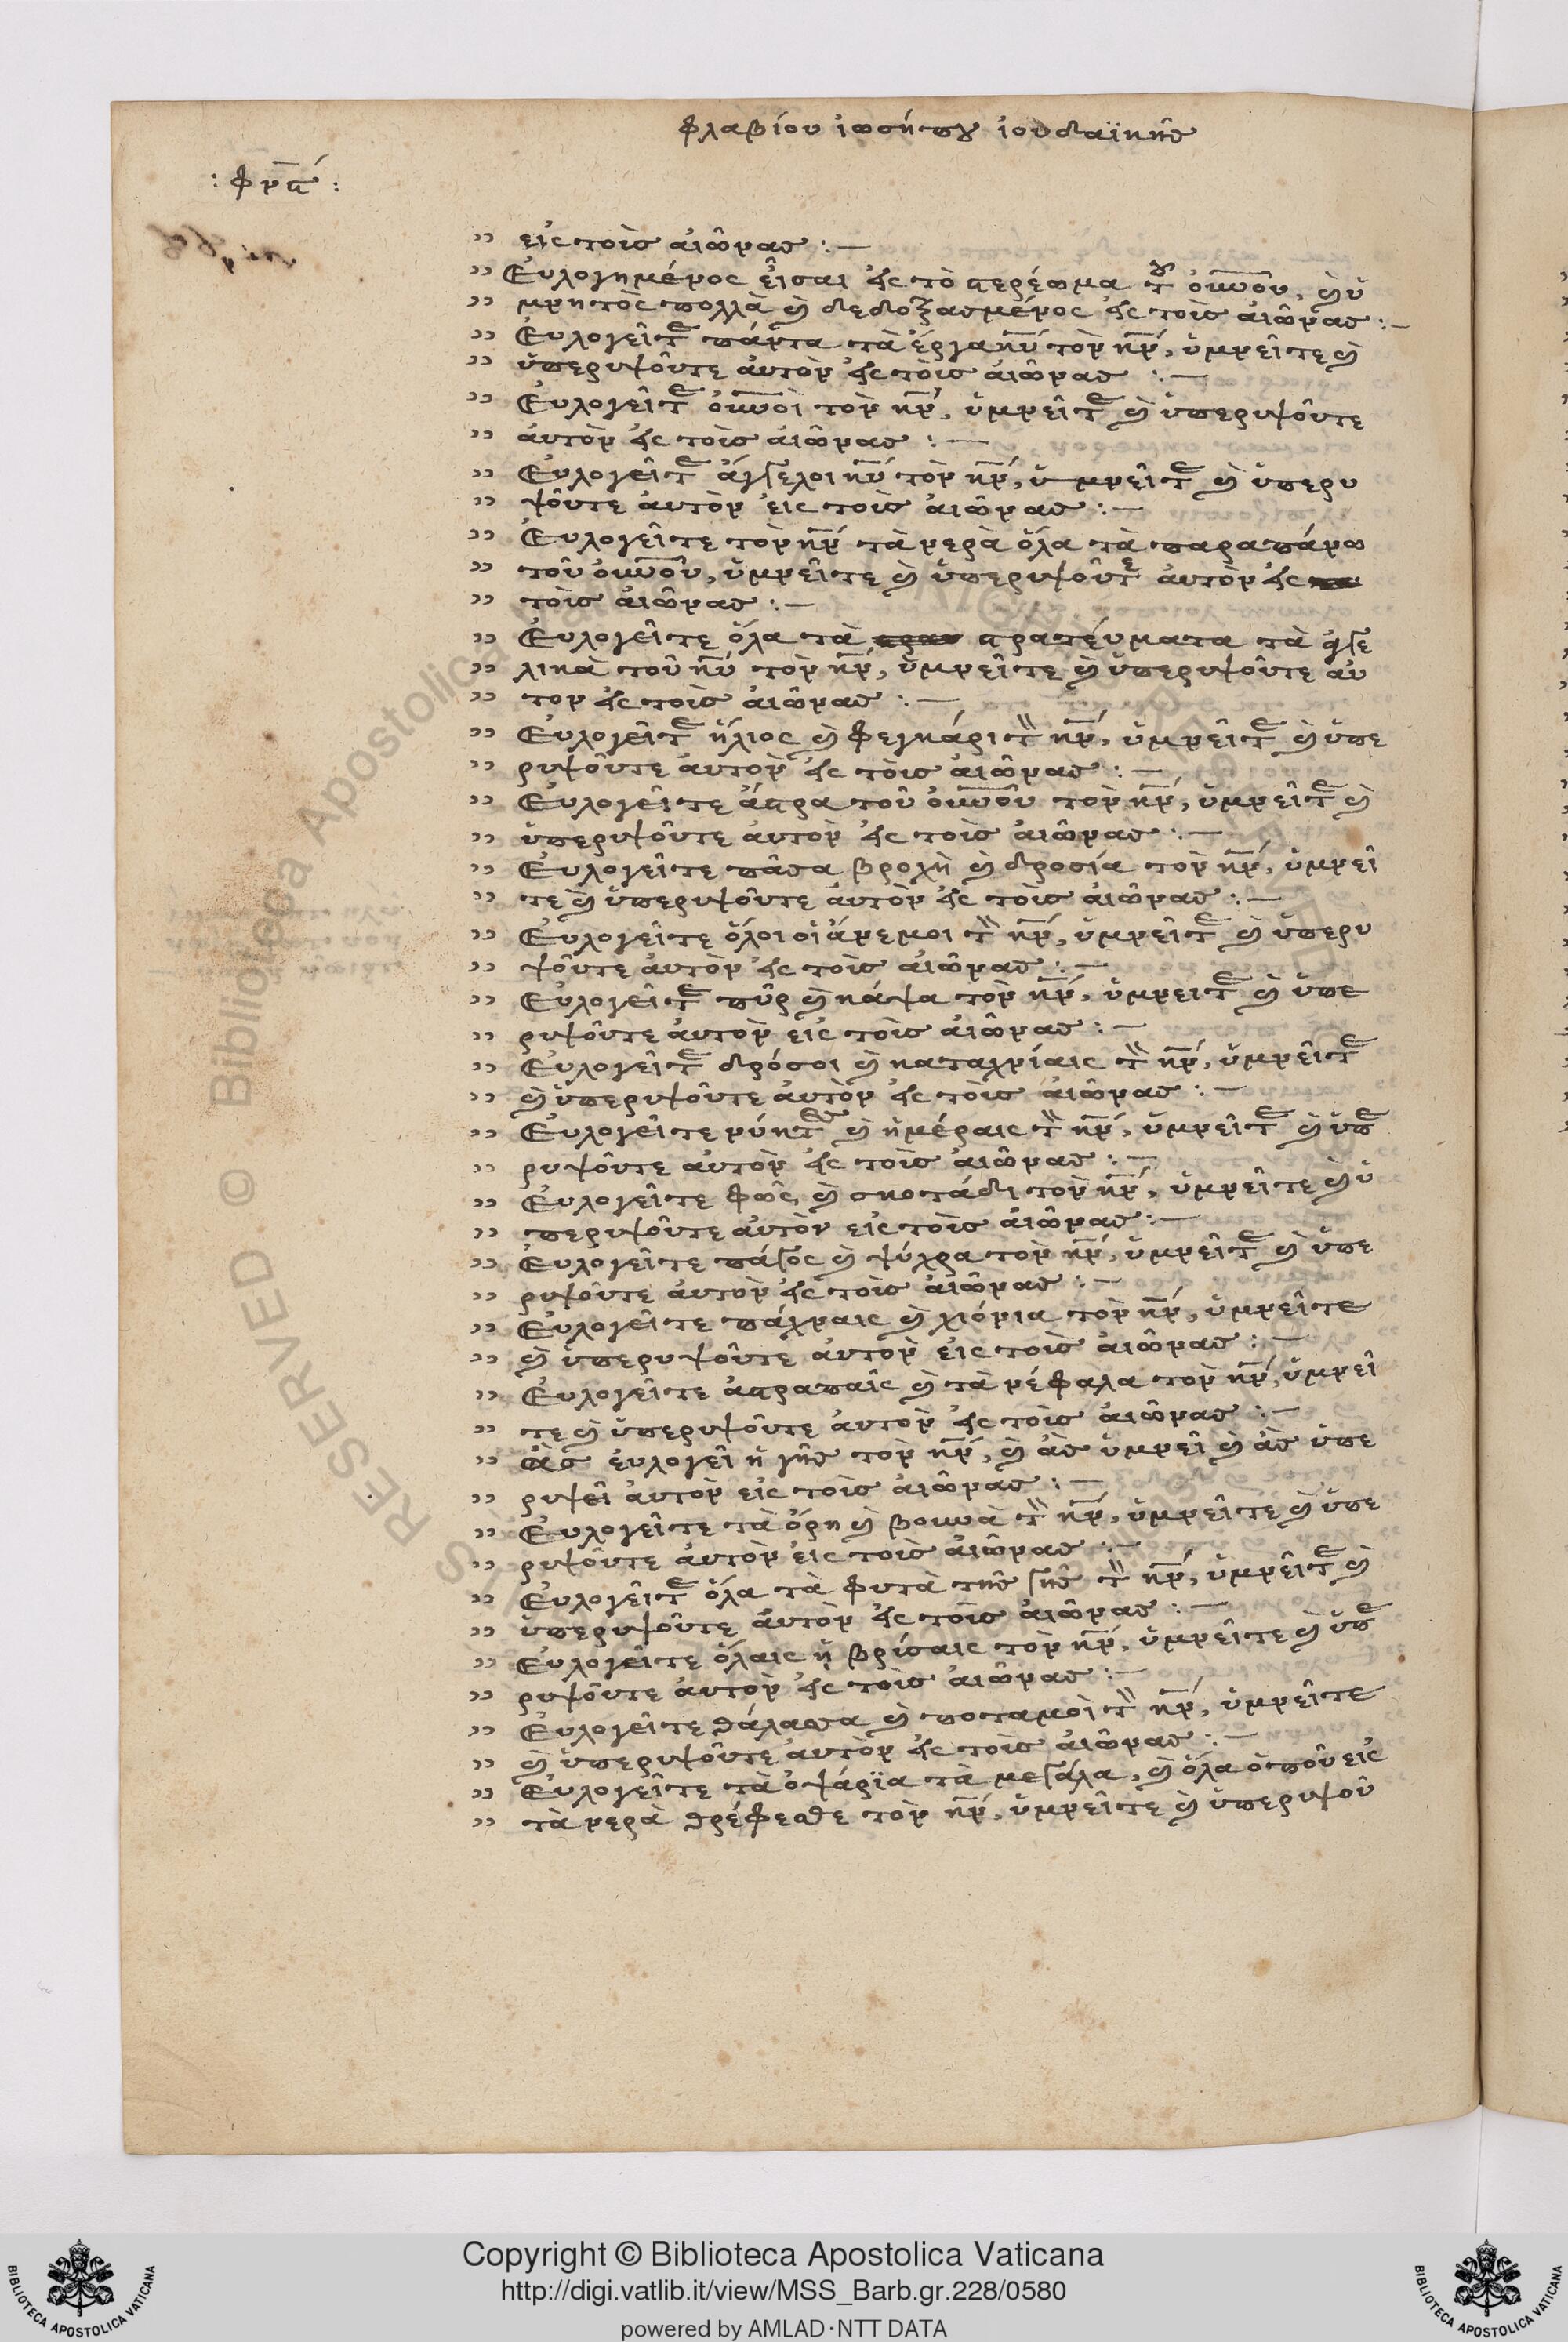 φλαβίου ἰωσήπου ἰουδαϊκῆς
: φξα :
” εἰς τοὺς αἰῶνας :—
” Εὐλογημένος εἶσαι εἰς τὸ στερέωμα τοῦ οὐνοῦ, καὶ ὑ
” μνητὸς πολλὰ καὶ δεδοξασμένος εἰς τοὺς αἰῶνας :—
” Εὐλογεῖτε πάντα τὰ ἔργα κῦ τὸν κν, ὑμνεῖτε καὶ
” ὑπερυψοῦτε αὐτὸν εἰς τοὺς αἰῶνας :—
” Εὐλογεῖτε οὐνοὶ τὸν κν, ὑμνεῖτε καὶ ὑπερυψοῦτε
” αὐτὸν εἰς τοὺς αἰῶνας :—
” Εὐλογεῖτε ἄγγελοι κυ τὸν κν, ὑμνεῖτε καὶ ὑπερυ
” ψοῦτε αὐτὸν εἰς τοὺς αἰῶνας :—
” Εὐλογεῖτε τὸν κν τὰ νερὰ ὅλα τὰ παραπάνω
” τοῦ οὐνοῦ, ὑμνεῖτε καὶ ὑπερυψοῦτε αὐτὸν εἰς
” τοὺς αἰῶνας :—
” Εὐλογεῖτε ὅλα τὰ στρατεύματα τὰ ἀγγε
” λικὰ τοῦ κυ τὸν κν, ὑμνεῖτε καὶ ὑπερυψοῦτε αὐ
” τον εἰς τοὺς αἰῶνας :—
” Εὐλογεῖτε ἥλιος καὶ φεγκάρι τὸν κν, ὑμνεῖτε καὶ ὑπε
” ρυψοῦτε αὐτὸν εἰς τοὺς αἰῶνας :—
” Εὐλογεῖτε ἄστρα τοῦ οὐνοῦ τὸν κν, ὑμνεῖτε καὶ
” ὑπερυψοῦτε αὐτὸν εἰς τοὺς αἰῶνας :—
” Εὐλογεῖτε πᾶσα βροχὴ καὶ δροσία τὸν κν, ὑμνεῖ
” τε καὶ ὑπερυψοῦτε αὐτὸν εἰς τοὺς αἰῶνας :—
” Εὐλογεῖτε ὅλοι οἱ ἄνεμοι τὸν κν, ὑμνεῖτε καὶ ὑπερυ
” ψοῦτε αὐτὸν εἰς τοὺς αἰῶνας :—
” Εὐλογεῖτε πῦρ καὶ κάψα τὸν κν, ὑμνειτε καὶ ὑπε
” ρυψοῦτε αὐτὸν εἰς τοὺς αἰῶνας :—
” Εὐλογεῖτε δρόσοι καὶ καταχνίαις τὸν κν, ὑμνεῖτε
” καὶ ὑπερυψοῦτε αὐτὸν εἰς τοὺς αἰῶνας :—
” Εὐλογεῖτε νύκτες καὶ ἡμέραις τὸν κν, ὑμνεῖτε καὶ ὑπε
” ρυψοῦτε αὐτὸν εἰς τοὺς αἰῶνας :—
” Εὐλογεῖτε φῶς καὶ σκοτάδι τὸν κν, ὑμνεῖτε καὶ ὑ
” περυψοῦτε αὐτὸν εἰς τοὺς αἰῶνας :—
” Εὐλογεῖτε πάγος καὶ ψύχρα τὸν κν, ὑμνεῖτε καὶ ὑπε
” ρυψοῦτε αὐτὸν εἰς τοὺς αἰῶνας :—
” Εὐλογεῖτε πάχναις καὶ χιόνια τὸν κν, ὑμνεῖτε
” καὶ ὑπερυψοῦτε αὐτὸν εἰς τοὺς αἰῶνας :—
” Εὐλογεῖτε ἀστραπαῖς καὶ τὰ νέφαλα τὸν κν, ὑμνεῖ
” τε καὶ ὑπερυψοῦτε αὐτὸν εἰς τοὺς αἰῶνας :—
” Ἂς εὐλογεῖ ἡ γῆς τὸν κν, καὶ ἂς ὑμνεῖ καὶ ἂς ὑπε
” ρυψεῖ αὐτὸν εἰς τοὺς αἰῶνας :—
” Εὐλογεῖτε τὰ ὄρη καὶ βουνὰ τὸν κν, ὑμνεῖτε καὶ ὑπε
” ρυψοῦτε αὐτὸν εἰς τοὺς αἰῶνας :—
” Εὐλογεῖτε ὅλα τὰ φυτὰ τῆς γῆς τὸν κν, ὑμνεῖτε καὶ
” ὑπερυψοῦτε αὐτὸν εἰς τοὺς αἰῶνας :—
” Εὐλογεῖτε ὅλαις ἡ βρύσαις τὸν κν, ὑμνεῖτε καὶ ὑπε
” ρυψοῦτε αὐτὸν εἰς τοὺς αἰῶνας :—
” Εὐλογεῖτε θάλασσα καὶ ποταμοὶ τὸν κν, ὑμνεῖτε
” καὶ ὑπερυψοῦτε αὐτὸν εἰς τοὺς αἰῶνας :—
” Εὐλογεῖτε τὰ ὀψάρϊα τὰ μεγάλα, καὶ ὅλα ὁποῦ εἰς
” τὰ νερὰ θρέφεσθε τὸν κν, ὑμνεῖτε καὶ ὑπερυψοῦ
RESERVED © Biblioteca Apostolica
Copyright © Biblioteca Apostolica Vaticana
http://digi.vatlib.it/view/MSS_Barb.gr.228/0580
powered by AMLAD·NTT DATA
BIBLIOTECA APOSTOLICA VATICANA
BIBLIOTECA APOSTOLICA VATICANA